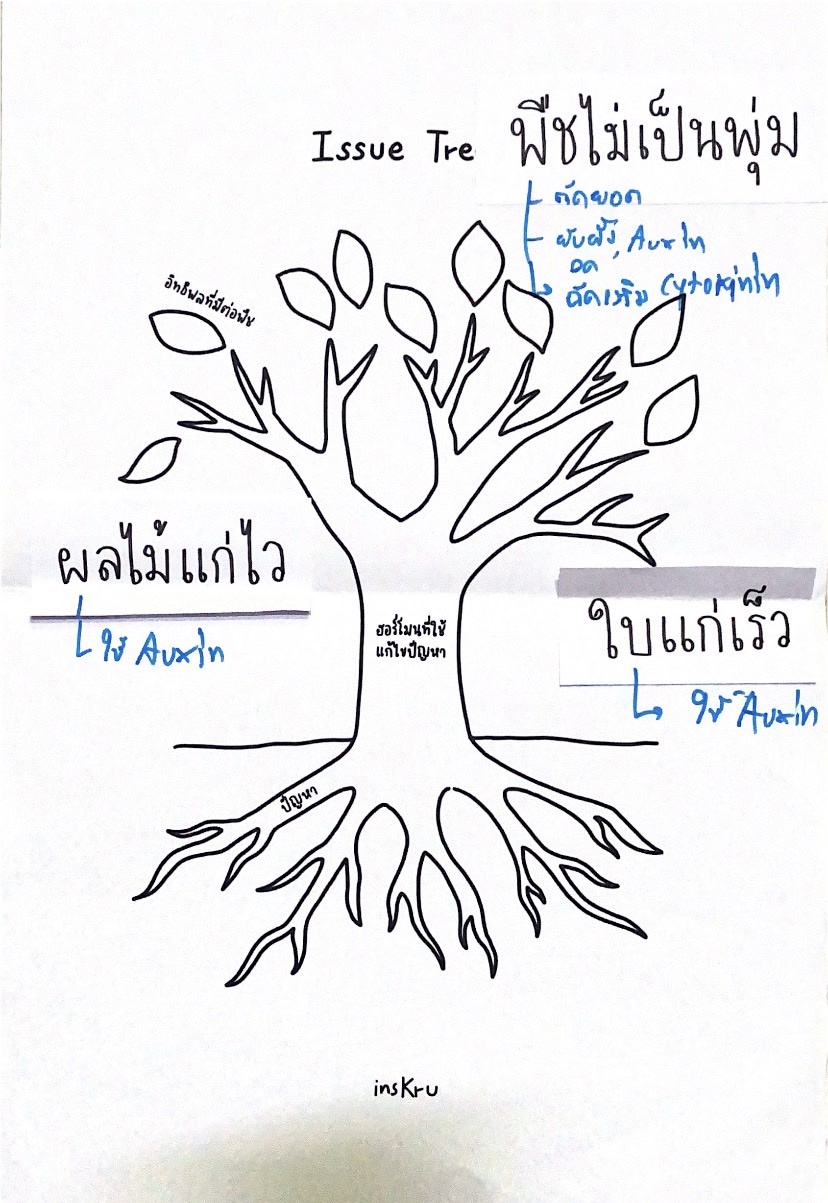 Issue Tre
พืชไม่เป็นพุ่ม
ตัดยอด
ยับยั้ง Auxin
ฉีดเสริม Cytokinin
อิทธิพลที่มีต่อพืช
ผลไม้แก่ไว
ใช้ Auxin
ฮอร์โมนที่ใช้
แก้ไขปัญหา
ใบแก่เร็ว
ใช้ Auxin
ปัญหา
insKru